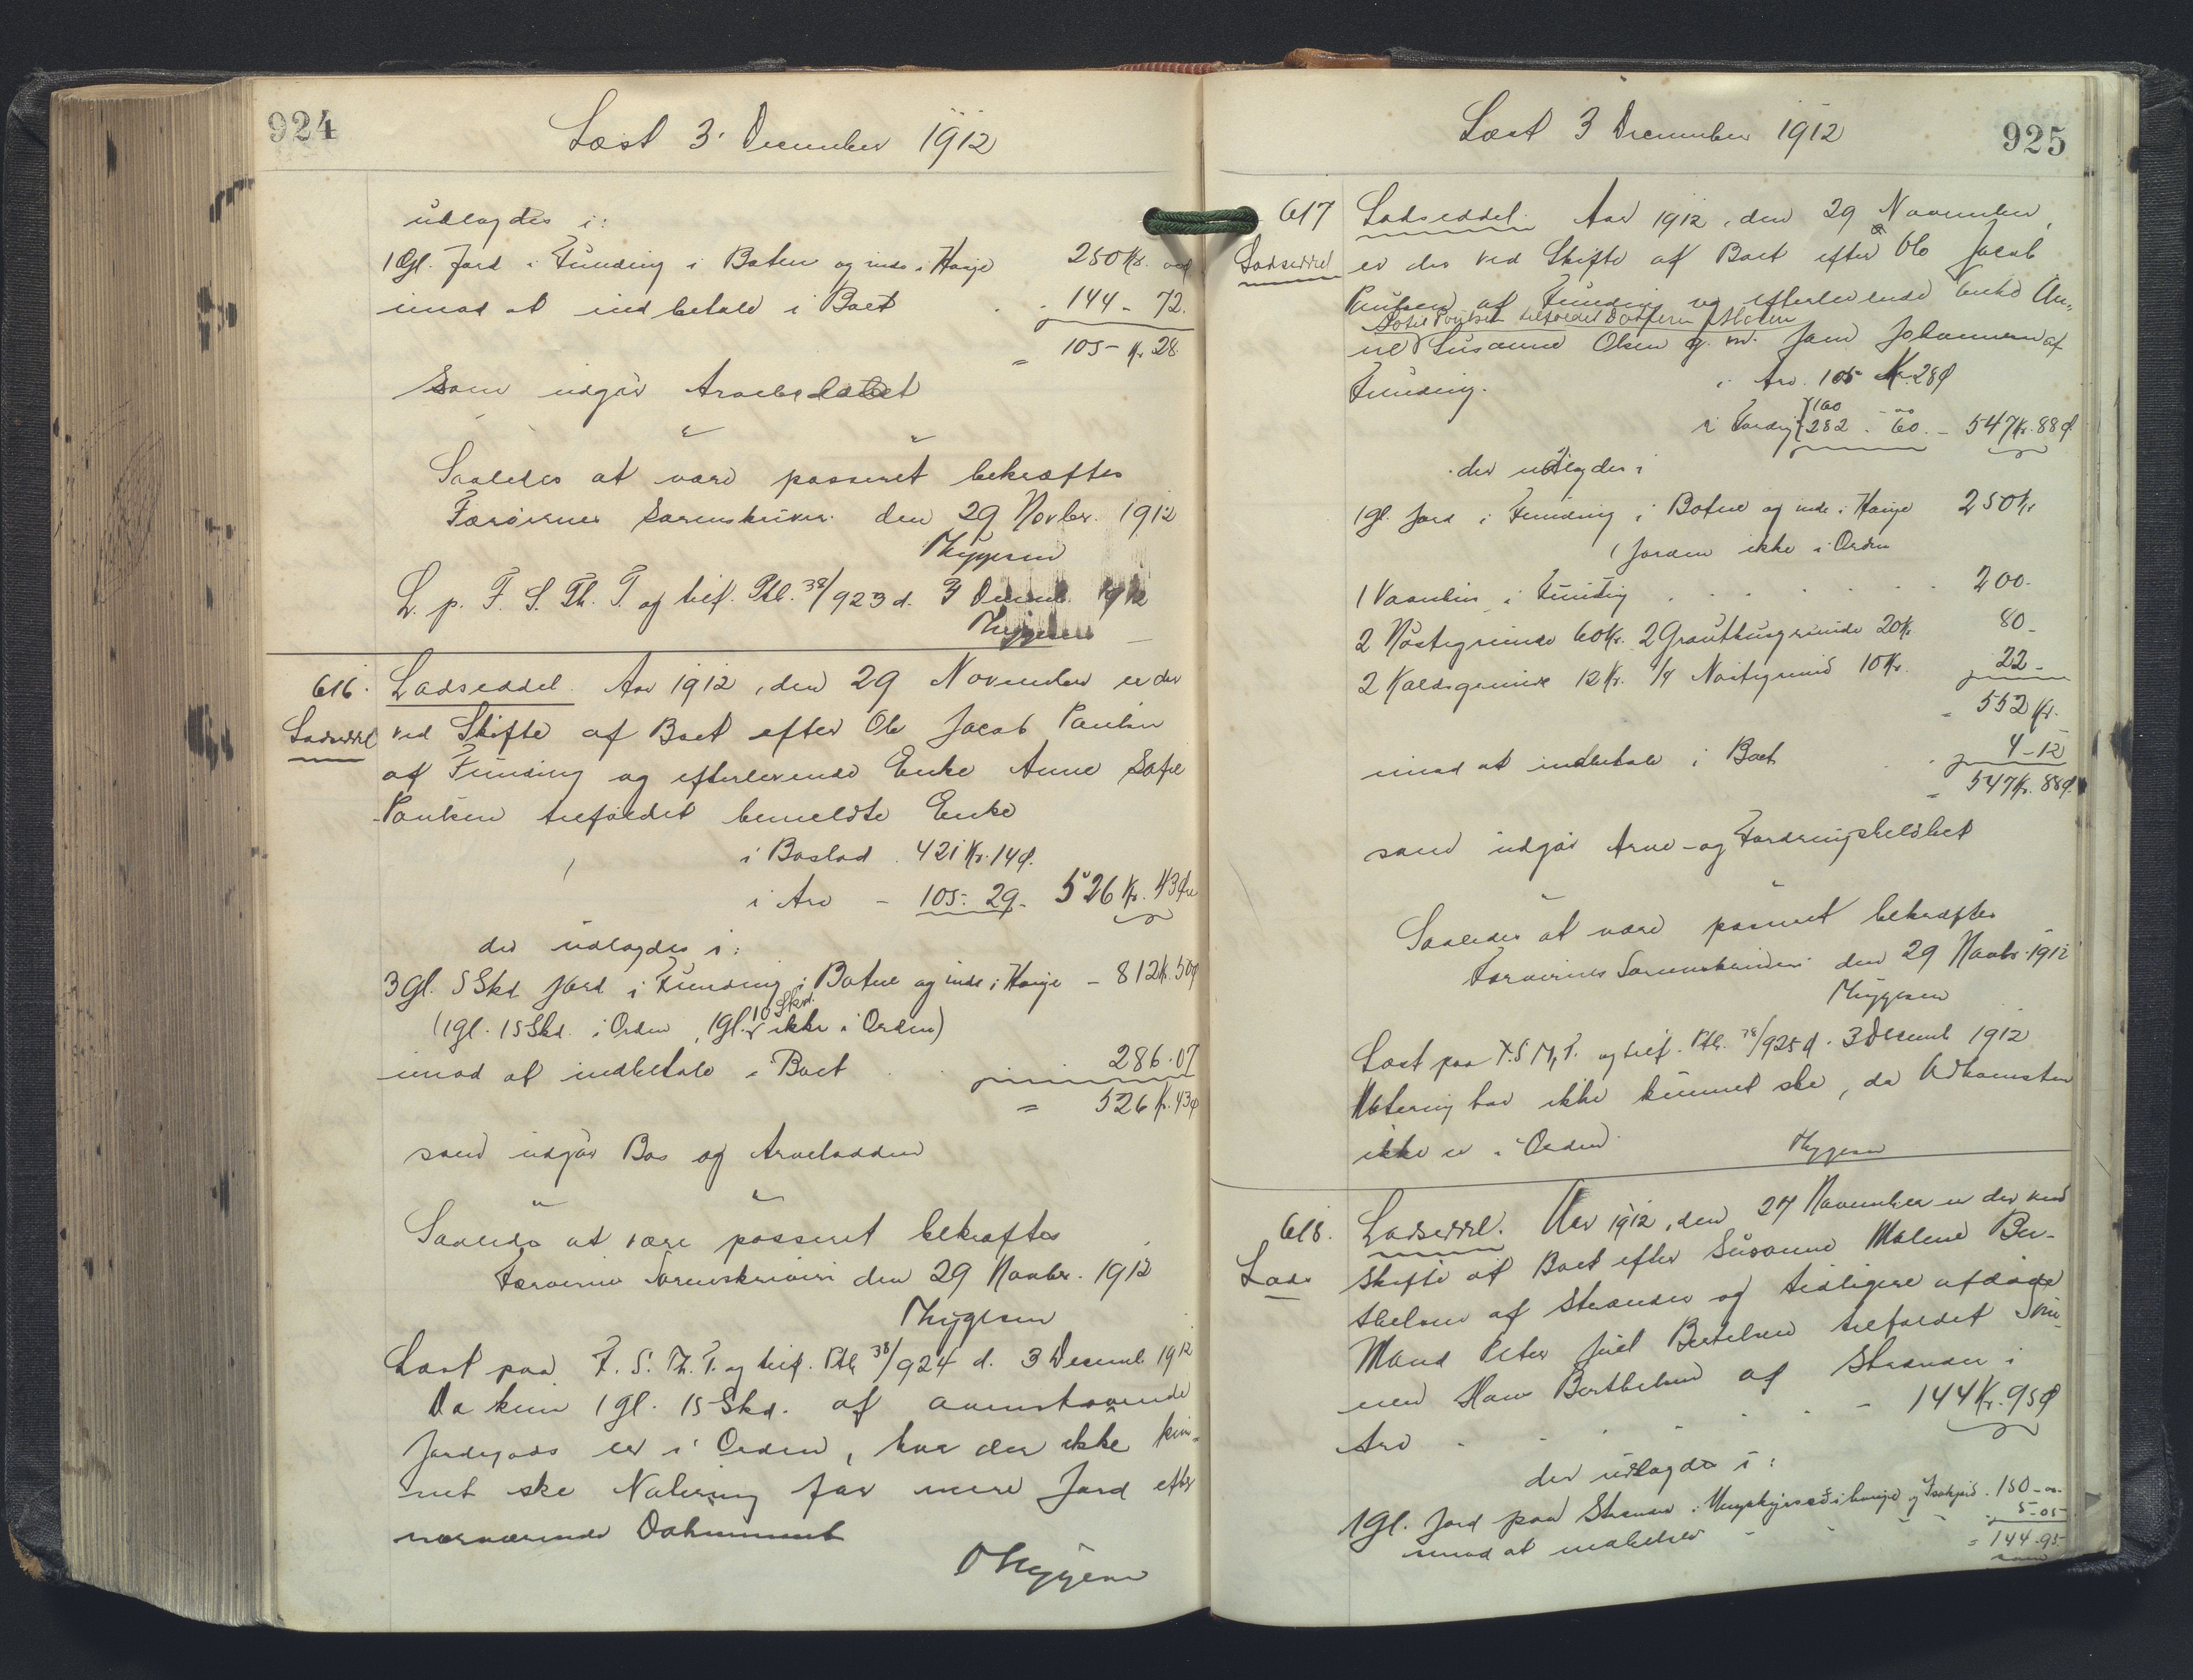 924
Læst 3' December 1912
udlagdes i:
1 Gl. Jord i Funding i Boten og inds i Hauge 250 Kr.
imod at indbetale i Boet 144 - 72.
= 105 - Kr 28.
som udgør Arvebeløbet
Saaledes at være passeret bekræftes
Færøernes Sorenskriveri den 29 Novbr. 1912
Thygesen
L. p. F. S. Th. T. og tilf. Ptl. 38/923 d. 3 Decemb. 1912
Thygesen
616. Lodseddel. Aar 1912, den 29 November er der
Lodseddel ved Skifte af Boet efter Ole Jacob Paulsen
af Funding og efterlevende Enke Anne Sofie
Paulsen tilfaldet bemeldte Enke
i Boslod 421 Kr. 14 Ø.
i Arv - 105 - 29 - 526 Kr. 43 Øre
der udlagdes i:
3 Gl. 5 Skd Jord i Funding i Botne og inds i Hauge - 812 Kr. 50 Ø
(1 gl. 15 Skd. i Orden, 1 gl. 10 Skd. ikke i Orden)
imod at indbetale i Boet 286 - 07
= 526 Kr. 43 Ø
som udgør Bos og Arvelodden
Saaledes at være passeret bekræftes
Færøernes Sorenskriveri den 29 Novbr. 1912
Thygesen
Læst paa F. S. Th. T. og tilf. Ptl. 38/924 d. 3 Decemb. 1912
Da kun 1 gl. 15 Skd. af ovenstaaende
Jordegods er i Orden, har der ikke kun-
net ske Notering for mere Jord efter
nærværende Dokument
Thygesen
Læst 3 December 1912
925
617 Lodseddel. Aar 1912, den 29 November,
Lodseddel er der ved Skifte af Boet efter Ole Jacob
Paulsen af Funding og efterlevende Enke An-
Sofie Poulsen tilfaldet Datteren
ne Susanne Olsen g. m. Johannesen af
Funding. i Arv. 105 Kr. 28 Ø
i Fordrig {160 - 00
{282 - 60 - 547 Kr. 88 Ø
der udlagdes i
1 gl. Jord i Funding i Botne og inds i Hauge 250 Kr
(Jorden ikke i Orden
1 Vaanhus i Funding 200 -
2 Nøstegrunde 60 Kr. 2 Grauthusgrunde 20 Kr 80 -
2 Kaldsgrunde 12 Kr. 1/4 Nøstegrund 10 Kr. 22 -
= 552 Kr.
imod at indbetale i Boet 4 - 12
= 547 Kr. 88 Ø.
som udgør Arve- og Fordringsbeløbet
Saaledes at være passeret bekræftes
Færøernes Sorenskriveri den 29 Novbr. 1912
Thygesen
Læst paa F. S. M. T. og tilf. Ptl. 38/925 d. 3 Decemb 1912
Notering har ikke kunnet ske, da Adkomsten
ikke er i Orden. Thygesen
618. Lodseddel. Aar 1912, den 27 November er der ved
Lods Skifte af Boet efter Susanne Malene Ber-
thelsen af Strænder og tidligere afdøde
Mand Peter Juel Bertelsen tilfaldet Søn-
nen Hans Berthelsen af Strænder i
Arv 144 Kr. 95 Ø
der udlagdes i:
1 Gl. Jord paa Strænder i 150 - oo.
imod at indbetale 5 - 05
= 144 - 95
som